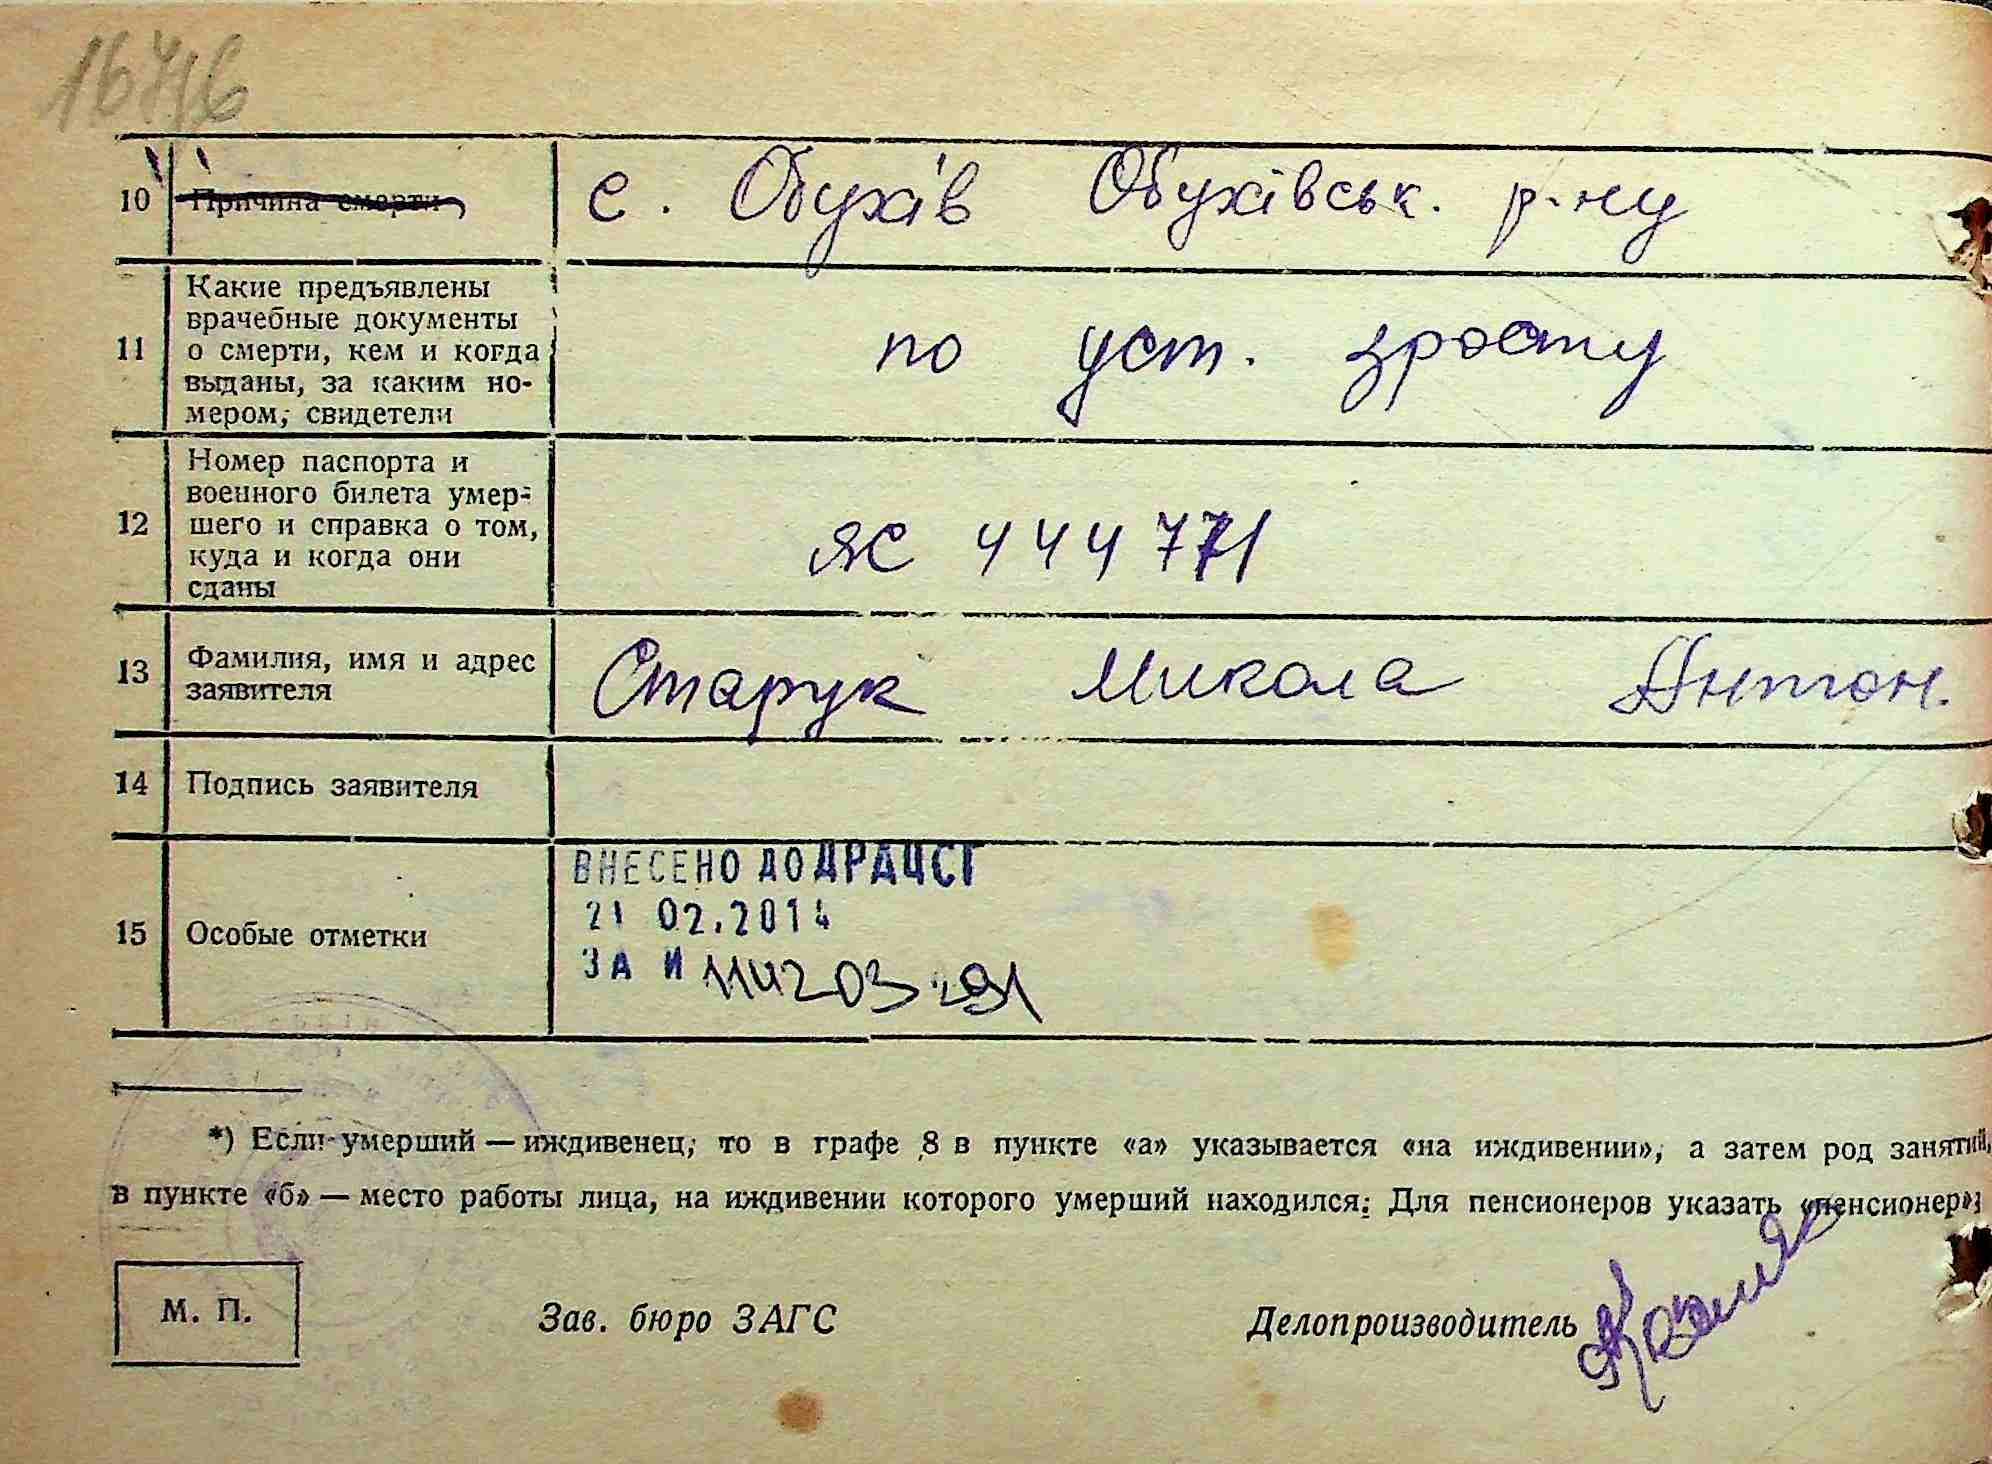 1676
10 Причина смерти
с. Обухів Обухівськ. р-ну
11 Какие предъявлены
врачебные документы
о смерти, кем и когда
выданы, за каким но-
мером, свидетели
по уст. зросту
12 Номер паспорта и
военного билета умер-
шего и справка о том,
куда и когда они
сданы
ЯС 444771
13 Фамилия, имя и адрес
заявителя
Старук Микола Антон.
14 Подпись заявителя
15 Особые отметки
ВНЕСЕНО ДО ДРАЦСГ
21 02.2014
ЗА И
*) Если умерший — иждивенец, то в графе 8 в пункте «а» указывается «на иждивении», а затем род занятий,
в пункте «б» — место работы лица, на иждивении которого умерший находился. Для пенсионеров указать «пенсионер»;
М. П.
Зав. бюро ЗАГС
Делопроизводитель